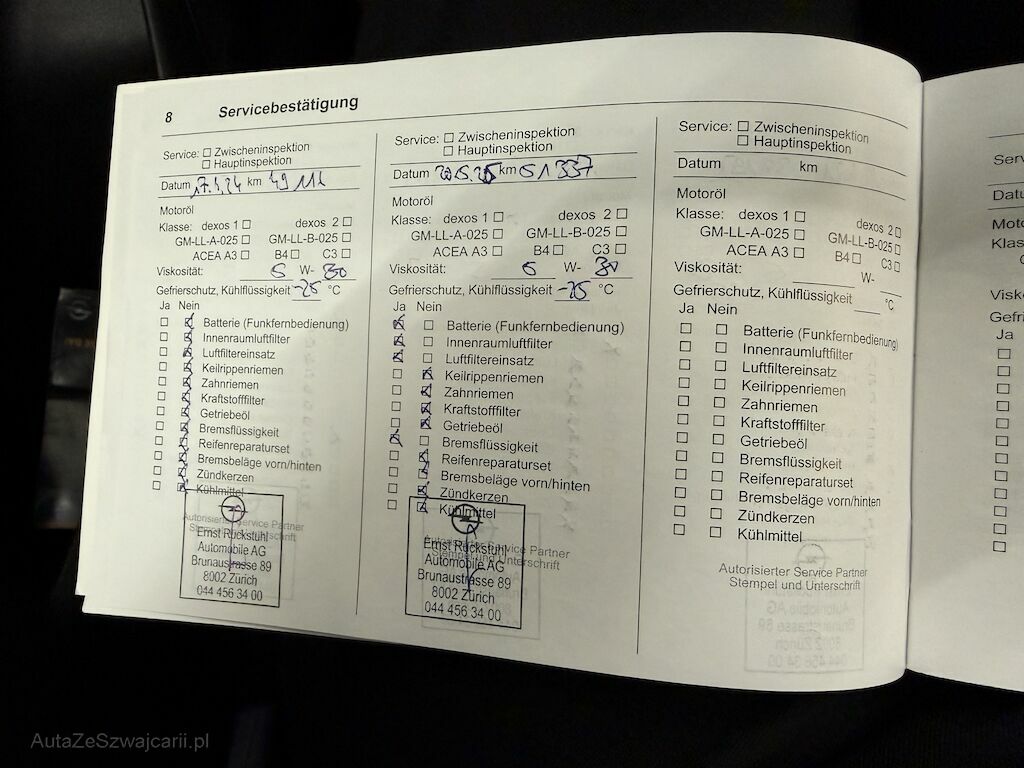 8 Servicebestätigung
Service: ☐ Zwischeninspektion
☐ Hauptinspektion
Datum 17.1.24 km 49 111
Motoröl
Klasse: dexos 1 ☐ dexos 2 ☐
GM-LL-A-025 ☐ GM-LL-B-025 ☐
ACEA A3 ☐ B4 ☐ C3 ☐
Viskosität: 5 W- 30
Gefrierschutz, Kühlflüssigkeit -25 °C
Ja Nein
☐ ☒ Batterie (Funkfernbedienung)
☐ ☒ Innenraumluftfilter
☐ ☒ Luftfiltereinsatz
☐ ☒ Keilrippenriemen
☐ ☒ Zahnriemen
☐ ☒ Kraftstofffilter
☐ ☒ Getriebeöl
☐ ☒ Bremsflüssigkeit
☐ ☒ Reifenreparaturset
☐ ☒ Bremsbeläge vorn/hinten
☐ ☒ Zündkerzen
☐ ☒ Kühlmittel
Autorisierter Service Partner
Stempel und Unterschrift
Ernst Rückstuhl
Automobile AG
Brunaustrasse 89
8002 Zürich
044 456 34 00
Service: ☐ Zwischeninspektion
☐ Hauptinspektion
Datum km 51 337
Motoröl
Klasse: dexos 1 ☐ dexos 2 ☐
GM-LL-A-025 ☐ GM-LL-B-025 ☐
ACEA A3 ☐ B4 ☐ C3 ☐
Viskosität: 5 W- 30
Gefrierschutz, Kühlflüssigkeit -25 °C
Ja Nein
☒ ☐ Batterie (Funkfernbedienung)
☒ ☐ Innenraumluftfilter
☒ ☐ Luftfiltereinsatz
☐ ☒ Keilrippenriemen
☐ ☒ Zahnriemen
☐ ☒ Kraftstofffilter
☐ ☒ Getriebeöl
☒ ☐ Bremsflüssigkeit
☐ ☒ Reifenreparaturset
☐ ☒ Bremsbeläge vorn/hinten
☐ ☒ Zündkerzen
☐ ☒ Kühlmittel
Autorisierter Service Partner
Stempel und Unterschrift
Ernst Rückstuhl
Automobile AG
Brunaustrasse 89
8002 Zürich
044 456 34 00
Service: ☐ Zwischeninspektion
☐ Hauptinspektion
Datum km
Motoröl
Klasse: dexos 1 ☐ dexos 2 ☐
GM-LL-A-025 ☐ GM-LL-B-025 ☐
ACEA A3 ☐ B4 ☐ C3 ☐
Viskosität: W-
Gefrierschutz, Kühlflüssigkeit °C
Ja Nein
☐ ☐ Batterie (Funkfernbedienung)
☐ ☐ Innenraumluftfilter
☐ ☐ Luftfiltereinsatz
☐ ☐ Keilrippenriemen
☐ ☐ Zahnriemen
☐ ☐ Kraftstofffilter
☐ ☐ Getriebeöl
☐ ☐ Bremsflüssigkeit
☐ ☐ Reifenreparaturset
☐ ☐ Bremsbeläge vorn/hinten
☐ ☐ Zündkerzen
☐ ☐ Kühlmittel
Autorisierter Service Partner
Stempel und Unterschrift
Ja
AutaZeSzwajcarii.pl